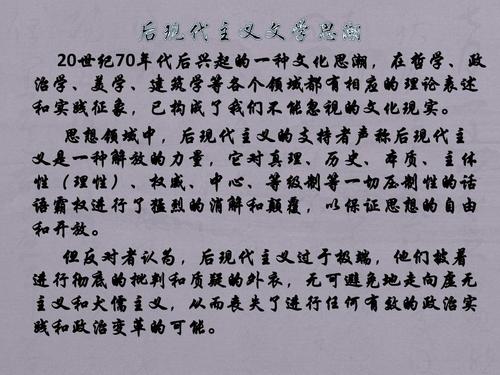 后现代主义文学思潮
20世纪70年代后兴起的一种文化思潮，在哲学、政
治学、美学、建筑学等各个领域都有相应的理论表述
和实践征象，已构成了我们不能忽视的文化现实。
思想领域中，后现代主义的支持者声称后现代主
义是一种解放的力量，它对真理、历史、本质、主体
性（理性）、权威、中心、等级制等一切压制性的话
语霸权进行了猛烈的消解和颠覆，以保证思想的自由
和开放。
但反对者认为，后现代主义过于极端，他们披着
进行彻底的批判和质疑的外衣，无可避免地走向虚无
主义和犬儒主义，从而丧失了进行任何有效的政治实
践和政治变革的可能。